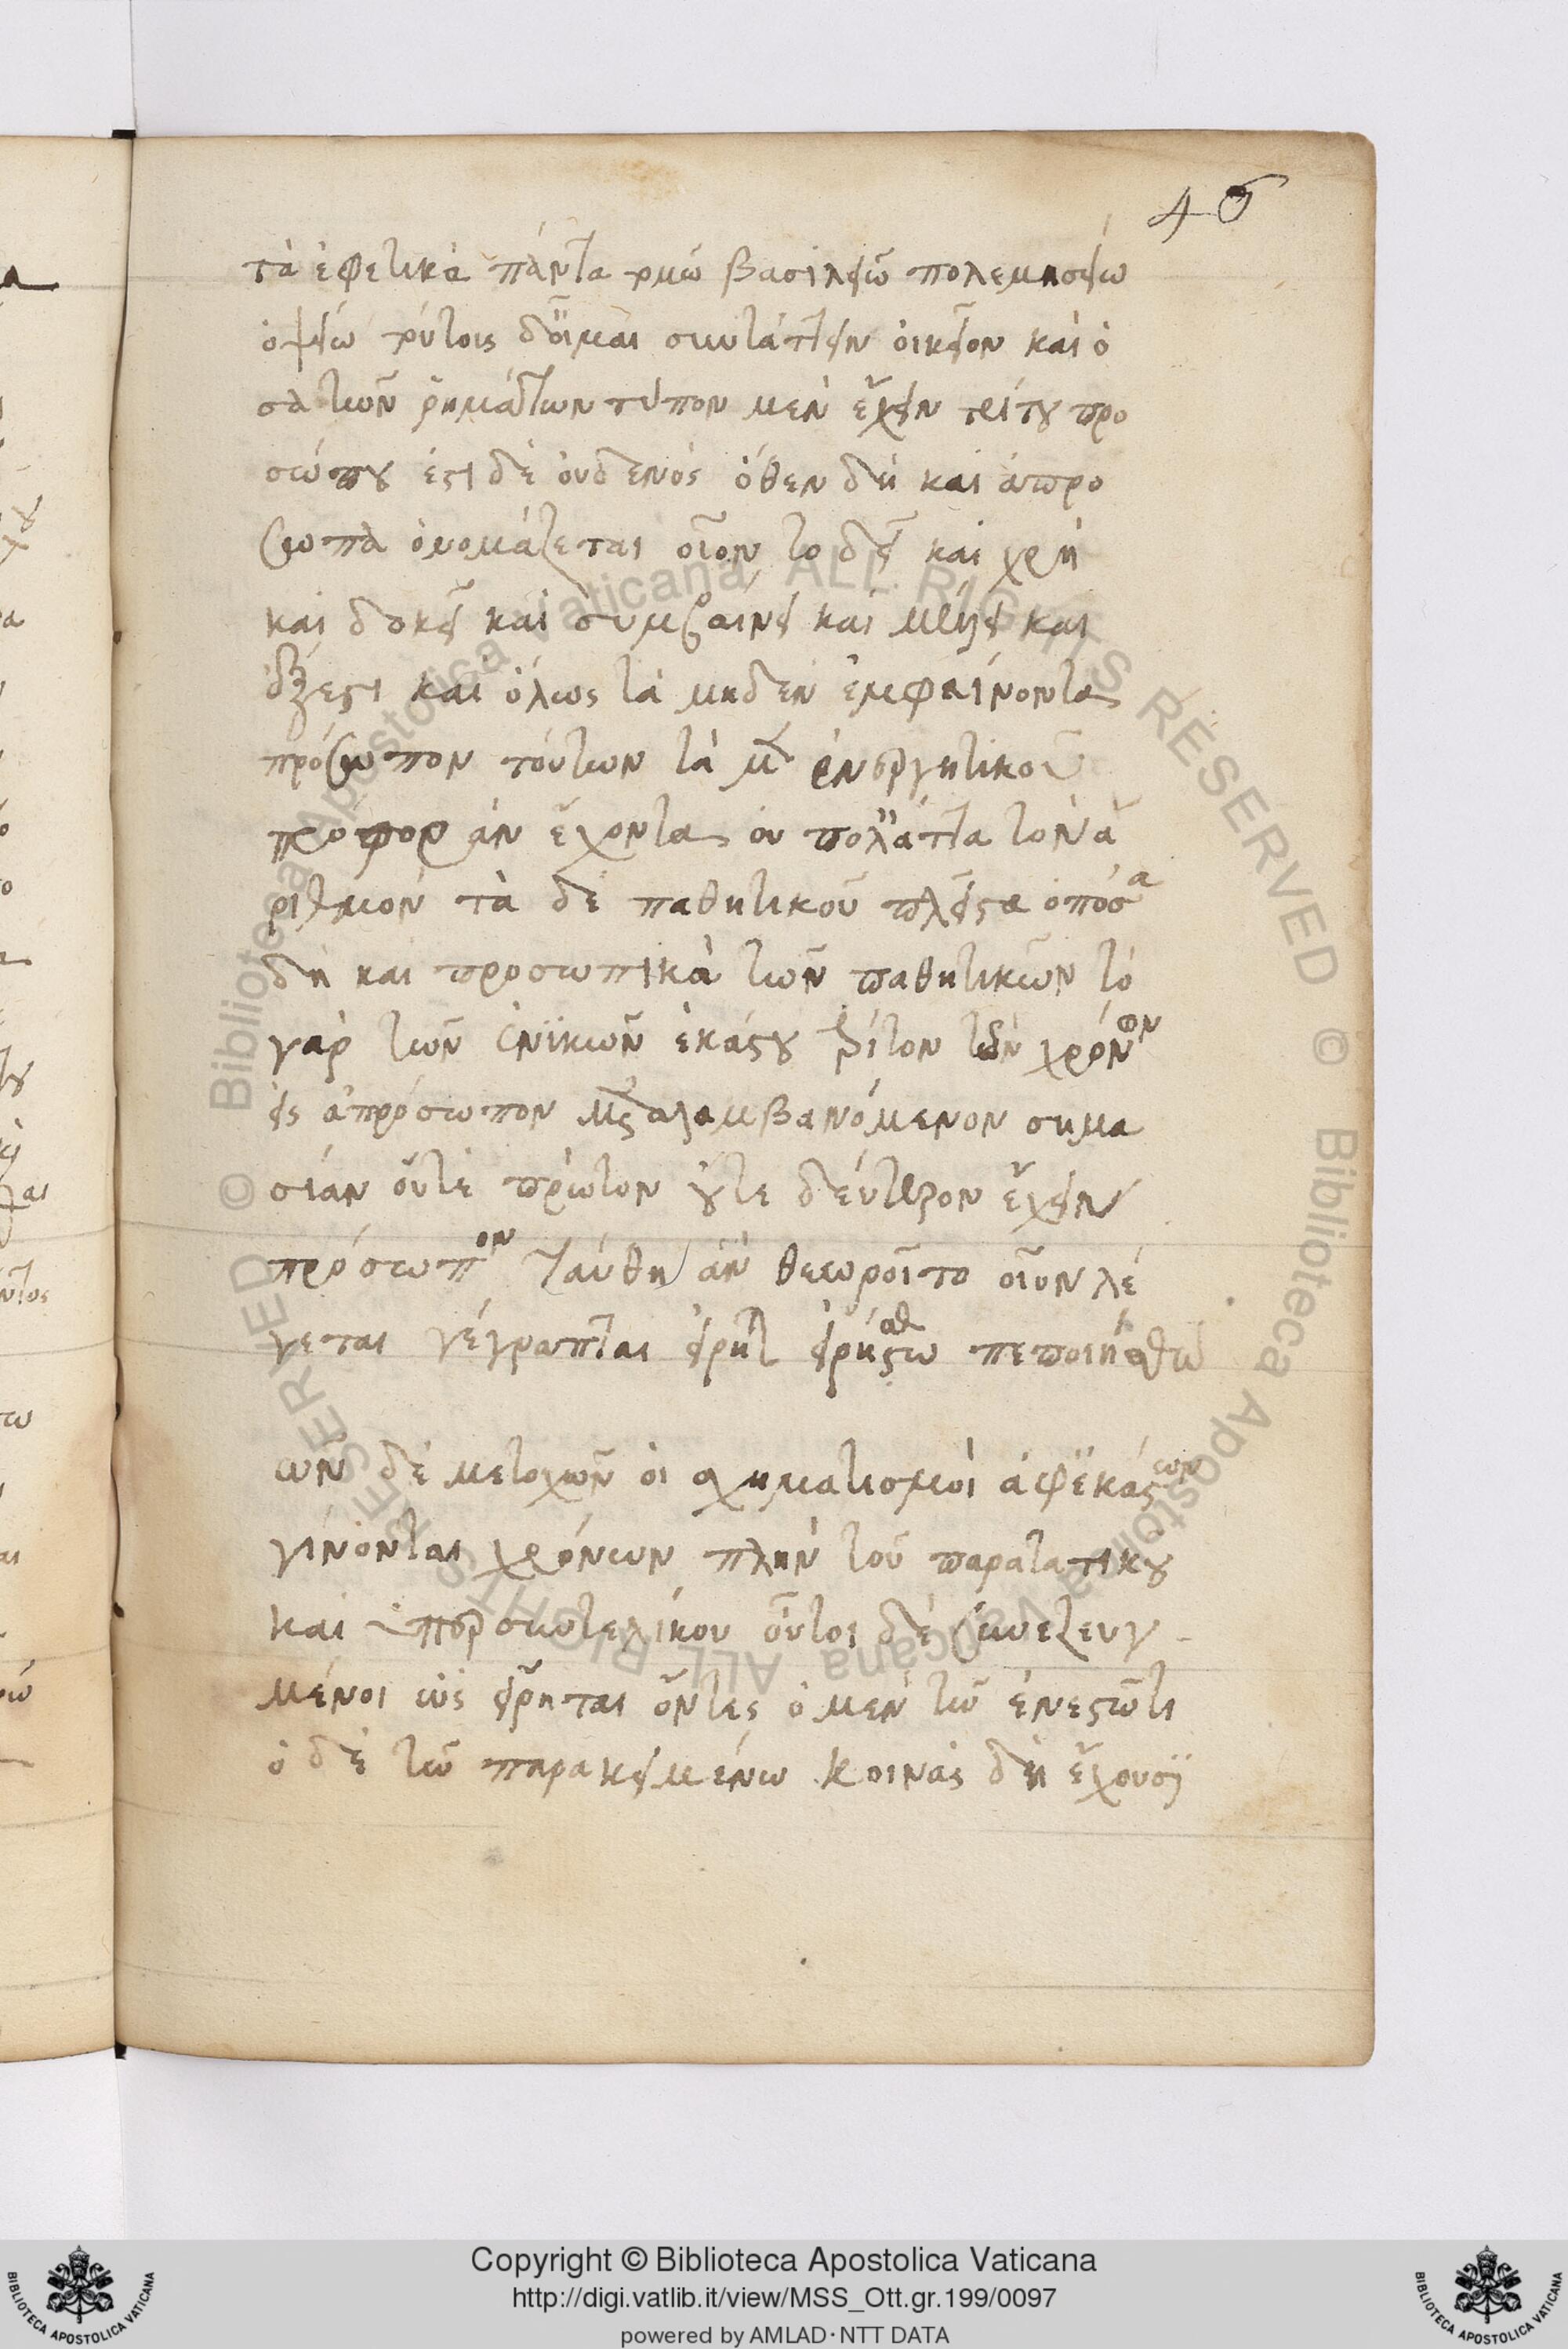 46
τὰ ἐφετικὰ πάντα βασιλειῶ πολεμησείω
ὀψείω τούτοις δ' οἶμαι συντάττειν οἰκεῖον καὶ ὁ
σα τῶν ῥημάτων τύπον μὲν ἔχειν τρίτου προ
σώπου ἐστὶ δὲ οὐδενὸς ὅθεν δὴ καὶ ἀπρό
σωπα ὀνομάζεται οἷον τὸ δεῖ καὶ χρὴ
καὶ δοκεῖ καὶ συμβαίνει καὶ μέλει καὶ
ἔξεστι καὶ ὅλως τὰ μηδὲν ἐμφαίνοντα
πρόσωπον τούτων τὰ μὲν ἐνεργητικοῦ
τρόπον ἂν ἔχοντα οὐ πολλάττα τὸν ἀ
ριθμὸν τὰ δὲ παθητικοῦ πλεῖστα ὁπόσα
δὴ καὶ προσωπικὰ τῶν παθητικῶν τὸ
γὰρ τῶν ἑνικῶν ἑκάστου τρίτον τῶν χρόνων
εἰς ἀπρόσωπον μεταλαμβανόμενον σημα
σίαν οὔτε πρῶτον οὔτε δεύτερον ἔχειν
πρόσωπον ταύτῃ ἂν θεωροῖτο οἷον λέ
γεται γέγραπται εἴρηται εἰρήσθω πεποιήσθω
ῶν δὲ μετοχῶν οἱ σχηματισμοὶ ἀφ' ἑκάστων
γίνονται χρόνων πλὴν τοῦ παρατατικοῦ
καὶ ὑπερσυντελίκου οὗτοι δὲ συνεζευγ
μένοι ὡς εἴρηται ὄντες ὁ μὲν τῶ ἐνεστῶτι
ὁ δὲ τῶ παρακειμένω κοινὰς δὴ ἔχουσι
© Biblioteca Apostolica Vaticana ALL RIGHTS RESERVED © Biblioteca Apostolica Vaticana ALL RIGHTS RESERVED
Copyright © Biblioteca Apostolica Vaticana
http://digi.vatlib.it/view/MSS_Ott.gr.199/0097
powered by AMLAD·NTT DATA
BIBLIOTECA APOSTOLICA VATICANA
BIBLIOTECA APOSTOLICA VATICANA